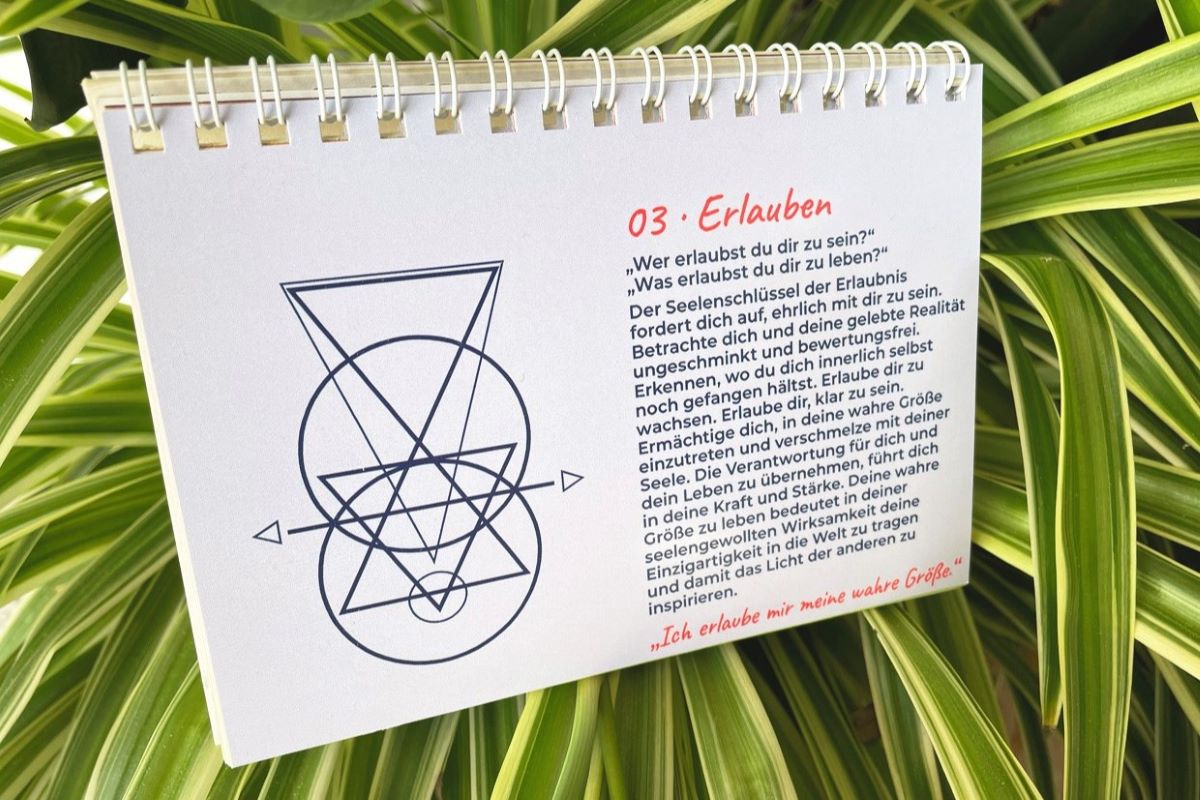 03 · Erlauben
„Wer erlaubst du dir zu sein?“
„Was erlaubst du dir zu leben?“
Der Seelenschlüssel der Erlaubnis
fordert dich auf, ehrlich mit dir zu sein.
Betrachte dich und deine gelebte Realität
ungeschminkt und bewertungsfrei.
Erkennen, wo du dich innerlich selbst
noch gefangen hältst. Erlaube dir zu
wachsen. Erlaube dir, klar zu sein.
Ermächtige dich, in deine wahre Größe
einzutreten und verschmelze mit deiner
Seele. Die Verantwortung für dich und
dein Leben zu übernehmen, führt dich
in deine Kraft und Stärke. Deine wahre
Größe zu leben bedeutet in deiner
seelengewollten Wirksamkeit deine
Einzigartigkeit in die Welt zu tragen
und damit das Licht der anderen zu
inspirieren.
„Ich erlaube mir meine wahre Größe.“